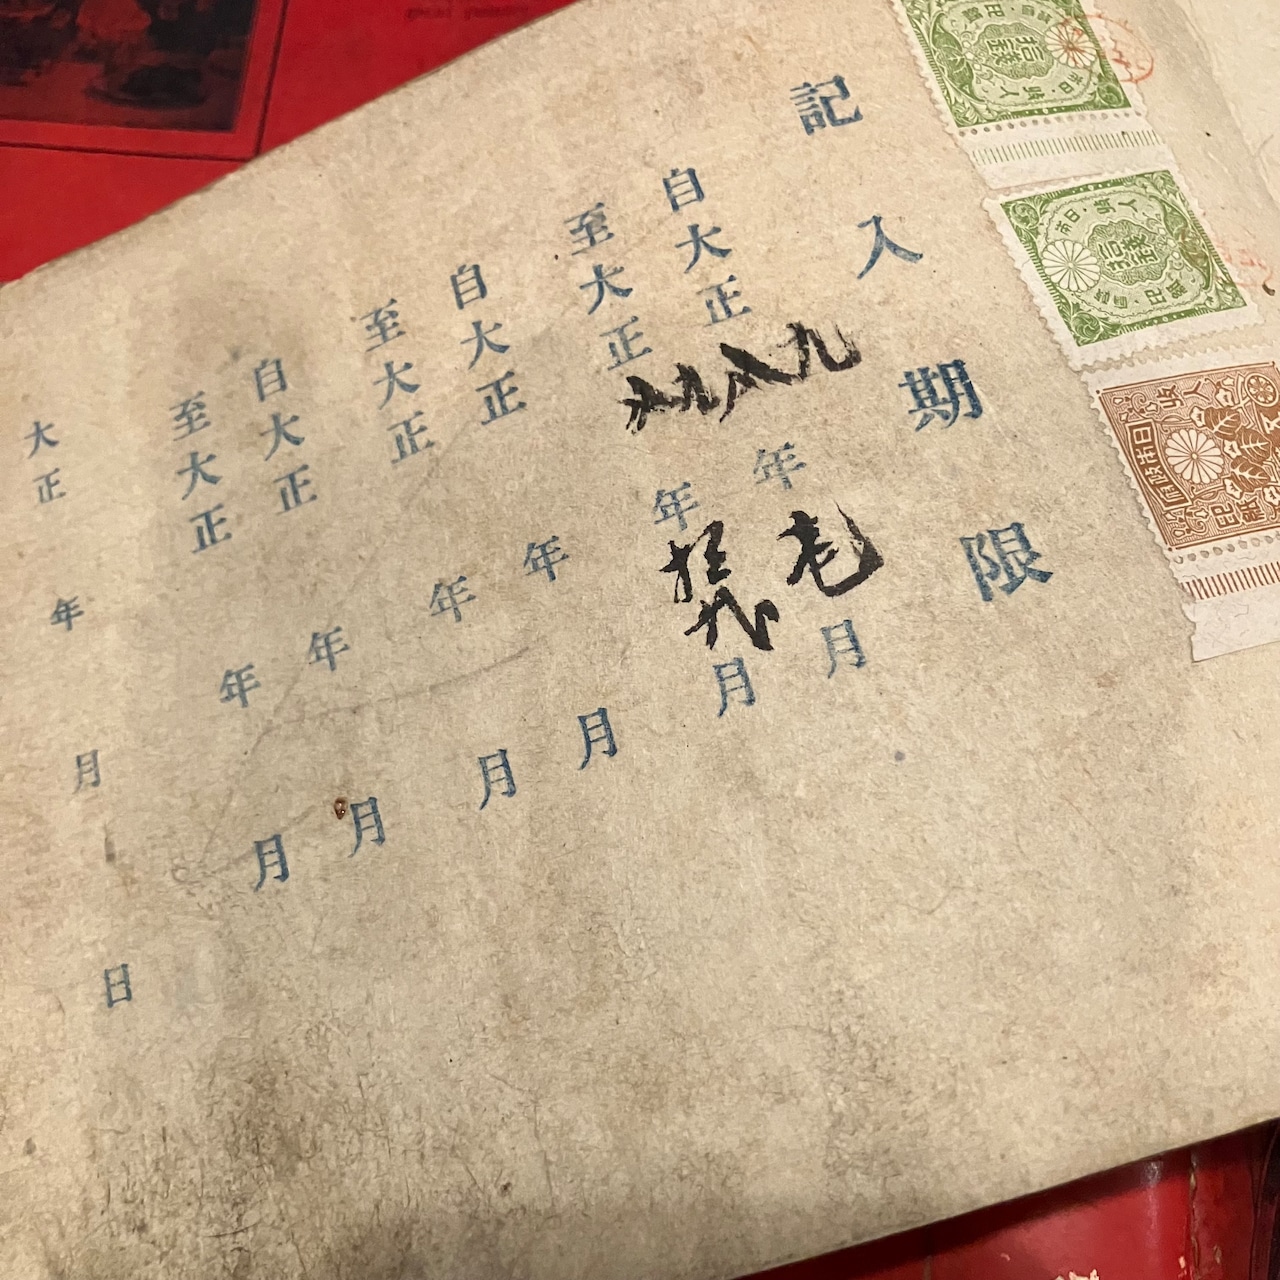 記入期限
自大正九年壱月
至大正九年拾弐月
自大正 年 月
至大正 年 月
自大正 年 月
至大正 年 月
大正 年 月 日
拾錢
拾錢